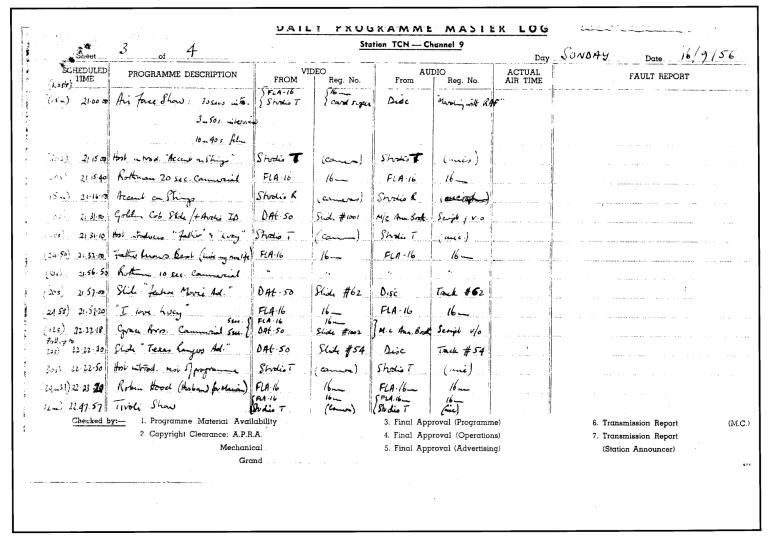 DAILY PROGRAMME MASTER LOG
Station TCN — Channel 9
Sheet 3 of 4
Day SUNDAY Date 16/9/56
SCHEDULED TIME PROGRAMME DESCRIPTION VIDEO AUDIO ACTUAL AIR TIME FAULT REPORT
FROM Reg. No. From Reg. No.
FLA-16 16—
21.00.00 Air Force Show: 30secs intro. Studio T Card super Disc "Marching with RAF"
3m 50s. interview
10m 40s. film
21.15.00 Host introd. "Accent on Strings" Studio T (camera) Studio T (mic)
21.15.40 Rothman 20 sec. Commercial FLA-16 16— FLA-16 16—
21.16.00 Accent on Strings Studio R (cameras) Studio R
21.31.00 Golden Cob Slide /+ Audio ID DAt-50 Slide #1001 M/c Ann. Booth Script / v.o
21.31.10 Host introduces "Father" & "Lucy" Studio T (camera) Studio T (mic)
21.32.00 Father Knows Best FLA-16 16— FLA-16 16—
21.56.50 Rothman 10 sec. Commercial " " " "
(20s) 21.57.00 Slide "Feature Movie Ad." DAT-50 Slide #62 Disc Track #62
21.57.20 "I love Lucy" FLA-16 16— FLA-16 16—
FLA-16 16—
22.22.18 Grace Bros. Commercial DAt-50 Slide #1002 M.c Ann. Booth Script v/o
22.22.30 Slide "Texas Rangers Ad." DAt-50 Slide #54 Disc Track #54
22.22.50 Host introd. rest of programme Studio T (camera) Studio T (mic)
22.23.20 Robin Hood (Husband for Marion) FLA-16 16— FLA-16 16—
FLA-16 16— FLA-16 16—
22.47.57 Tivoli Show Studio T (camera) Studio T (mic)
Checked by:— 1. Programme Material Availability 3. Final Approval (Programme) 6. Transmission Report (M.C.)
2 Copyright Clearance: A.P.R.A. 4. Final Approval (Operations) 7. Transmission Report
Mechanical 5. Final Approval (Advertising) (Station Announcer)
Grand